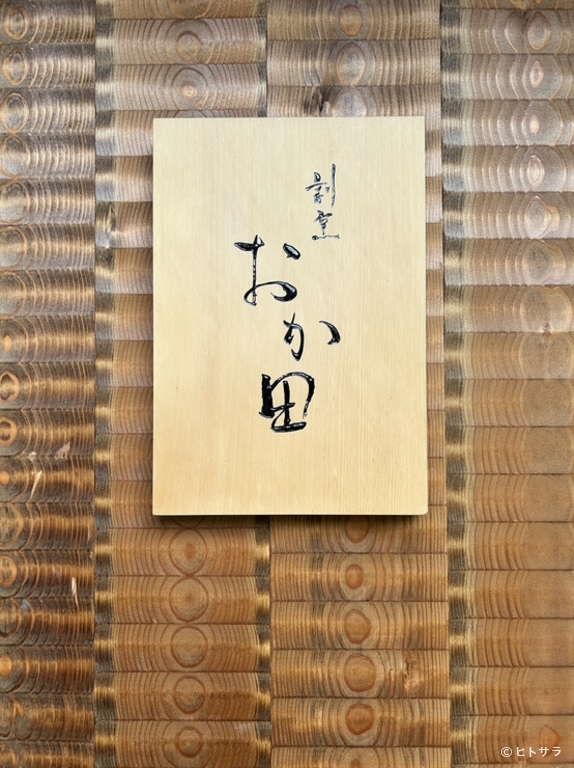 割烹
おか田
© ヒトサラ